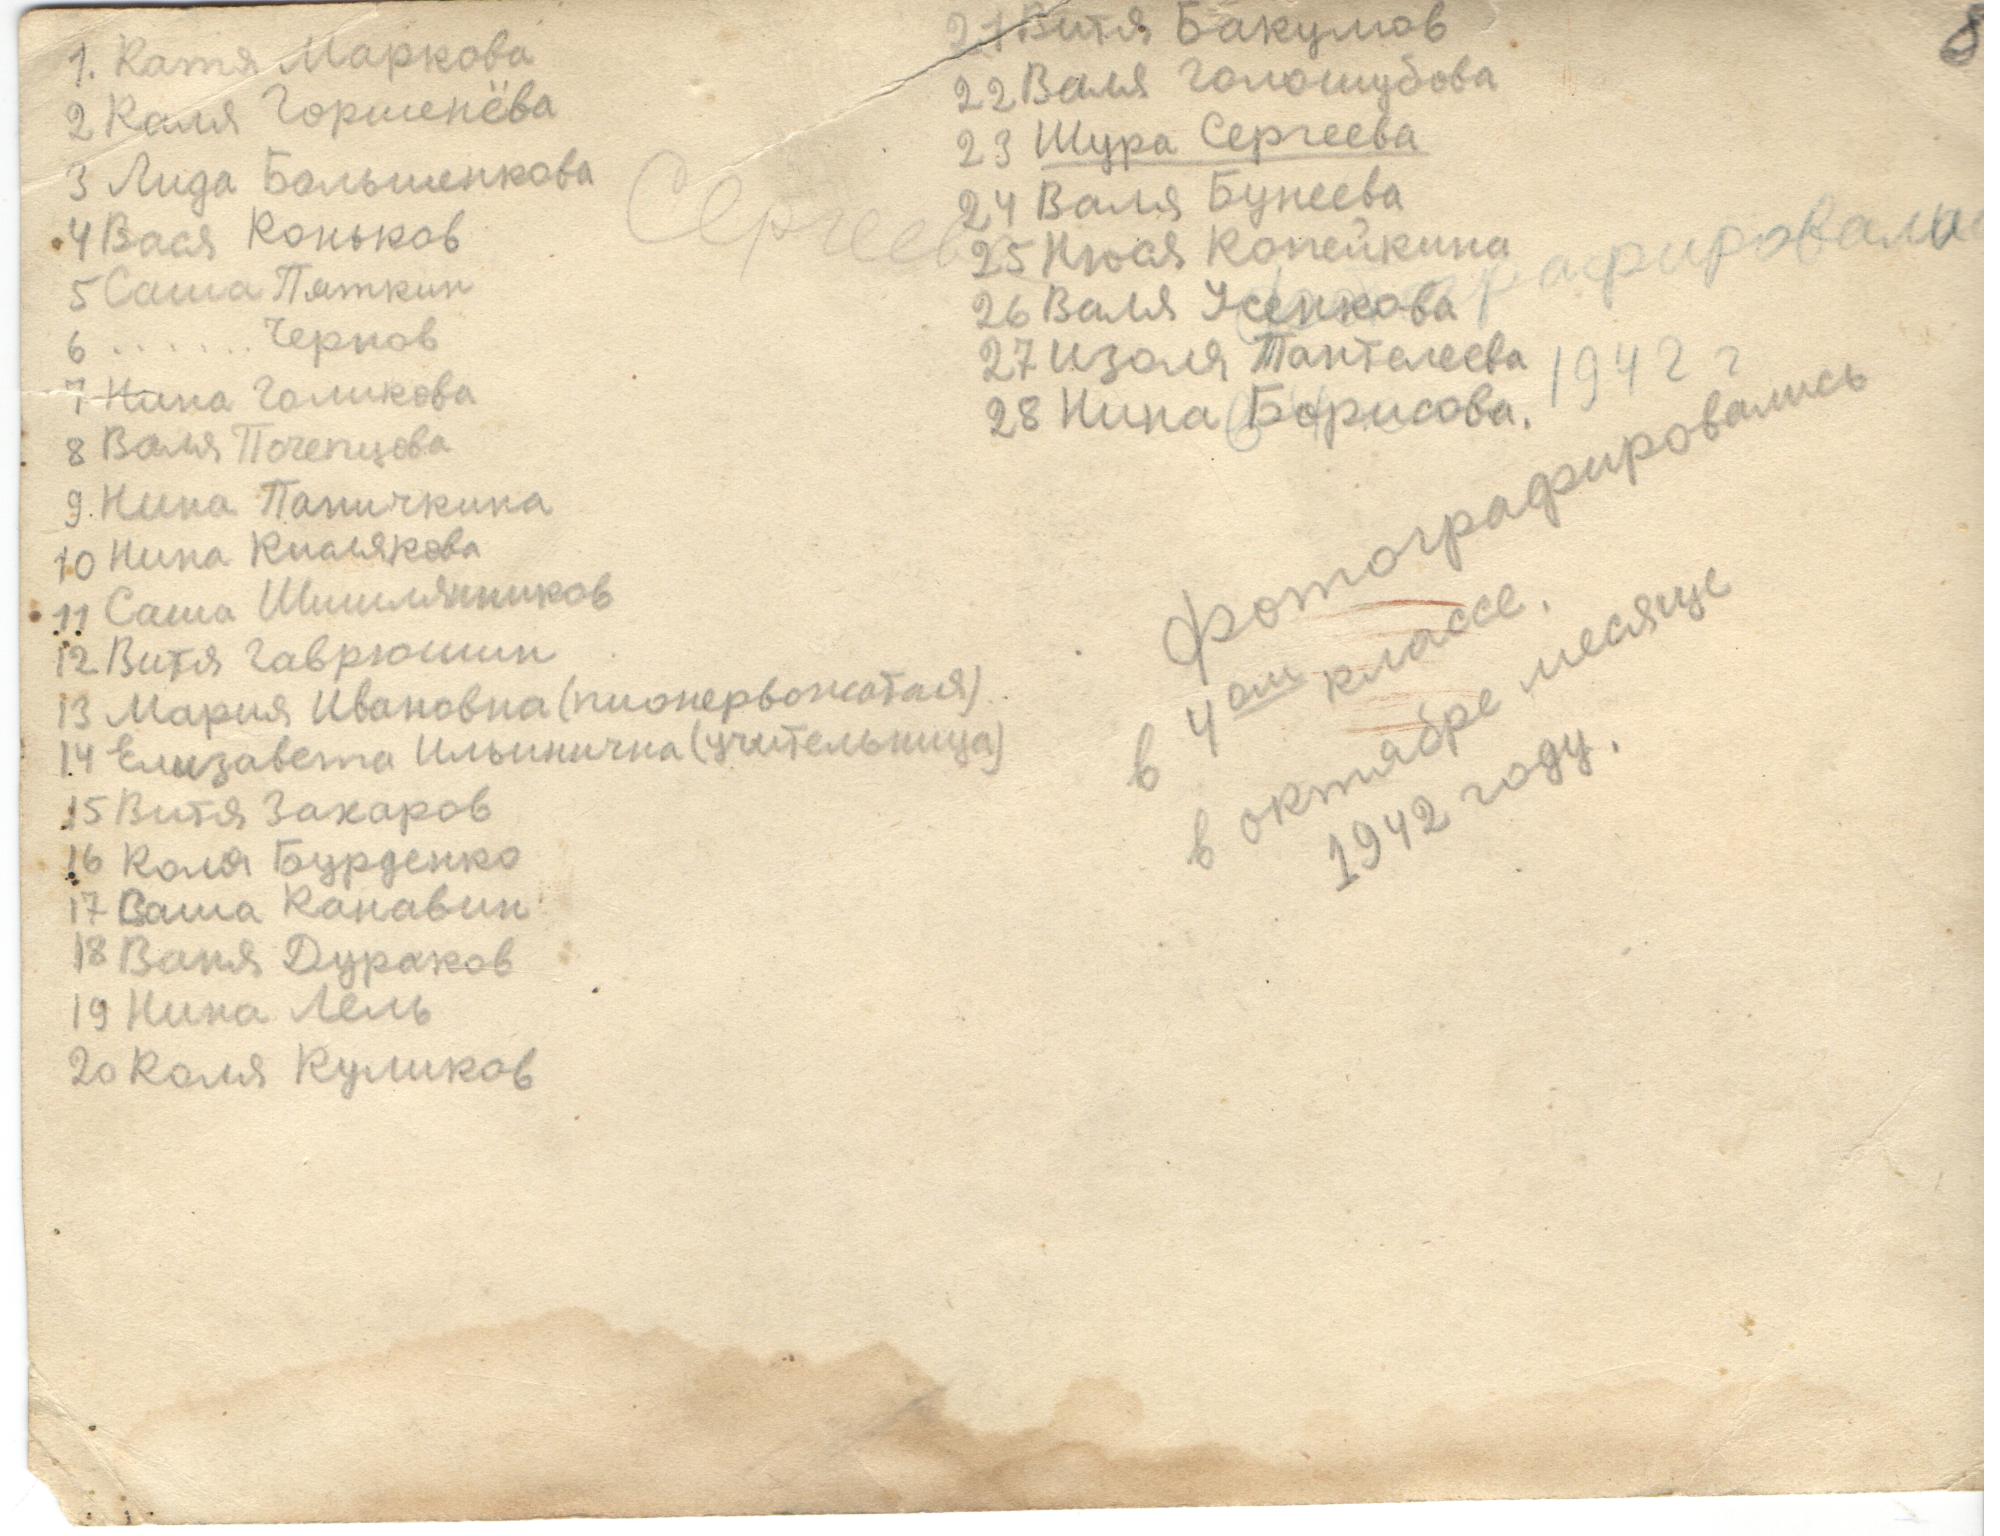 1. Катя Маркова
2 Каля Горшенёва
3 Лида Большенкова
4 Вася Коньков
5 Саша Пяткин
6 ....... Чернов
7 Нина Голикова
8 Валя Почепцова
9. Нина Паничкина
10 Нина
11 Саша
12 Витя Гаврюшин
13 Мария Ивановна (пионервожатая).
14 Елизавета Ильинична (учительница)
15 Витя Захаров
16 Коля Бурденко
17 Саша Канавин
18 Ваня Дураков
19 Нина Лель
20 Коля Куликов
Сергеев
21 Витя Бакумов
22 Валя Голошубова
23 Шура Сергеева
24 Валя Бунеева
25 Нюся Копейкина
26 Валя Усенкова
27 Изоля Пантелеева
28 Нина Борисова.
1942 г
Фотографировались
в 4ом классе.
в октябре месяце
1942 году.
8